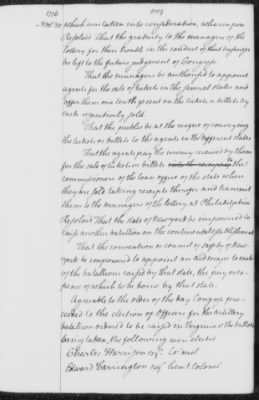 1776
1009
Novr 30 which was taken into consideration, whereupon
Resolved That the gratuity to the managers of the
lottery for their trouble in the conduct of that business
be left to the future judgment of Congress.
That the managers be authorized to appoint
agents for the sale of tickets in the several states and
offer them one tenth per cent on the tickets or billets by
each respectively sold.
That the public be at the risque of conveying
the tickets or billets to the agents in the different states
That the agents pay the money received by them
for the sale of tickets or billets to the
commissioners of the loan office of the state where
they are sold taking receipts therefor and transmit
them to the managers of the lottery at Philadelphia
Resolved That the state of New york be empowered to
raise another battalion on the continental establishment
That the convention or council of safety of New
york be empowered to appoint an third major to each
of the batallions raised by that state, the pay &
to be borne by that state.
Agreeable to the order of the day Congress pro-
ceeded to the election of Officers for the artillery
batalion ordered to be raised in Virginia & the ballots
being taken, the following were elected
Charles Harrison esqr. Colonel
Edward Carrington esqr lieut colonel